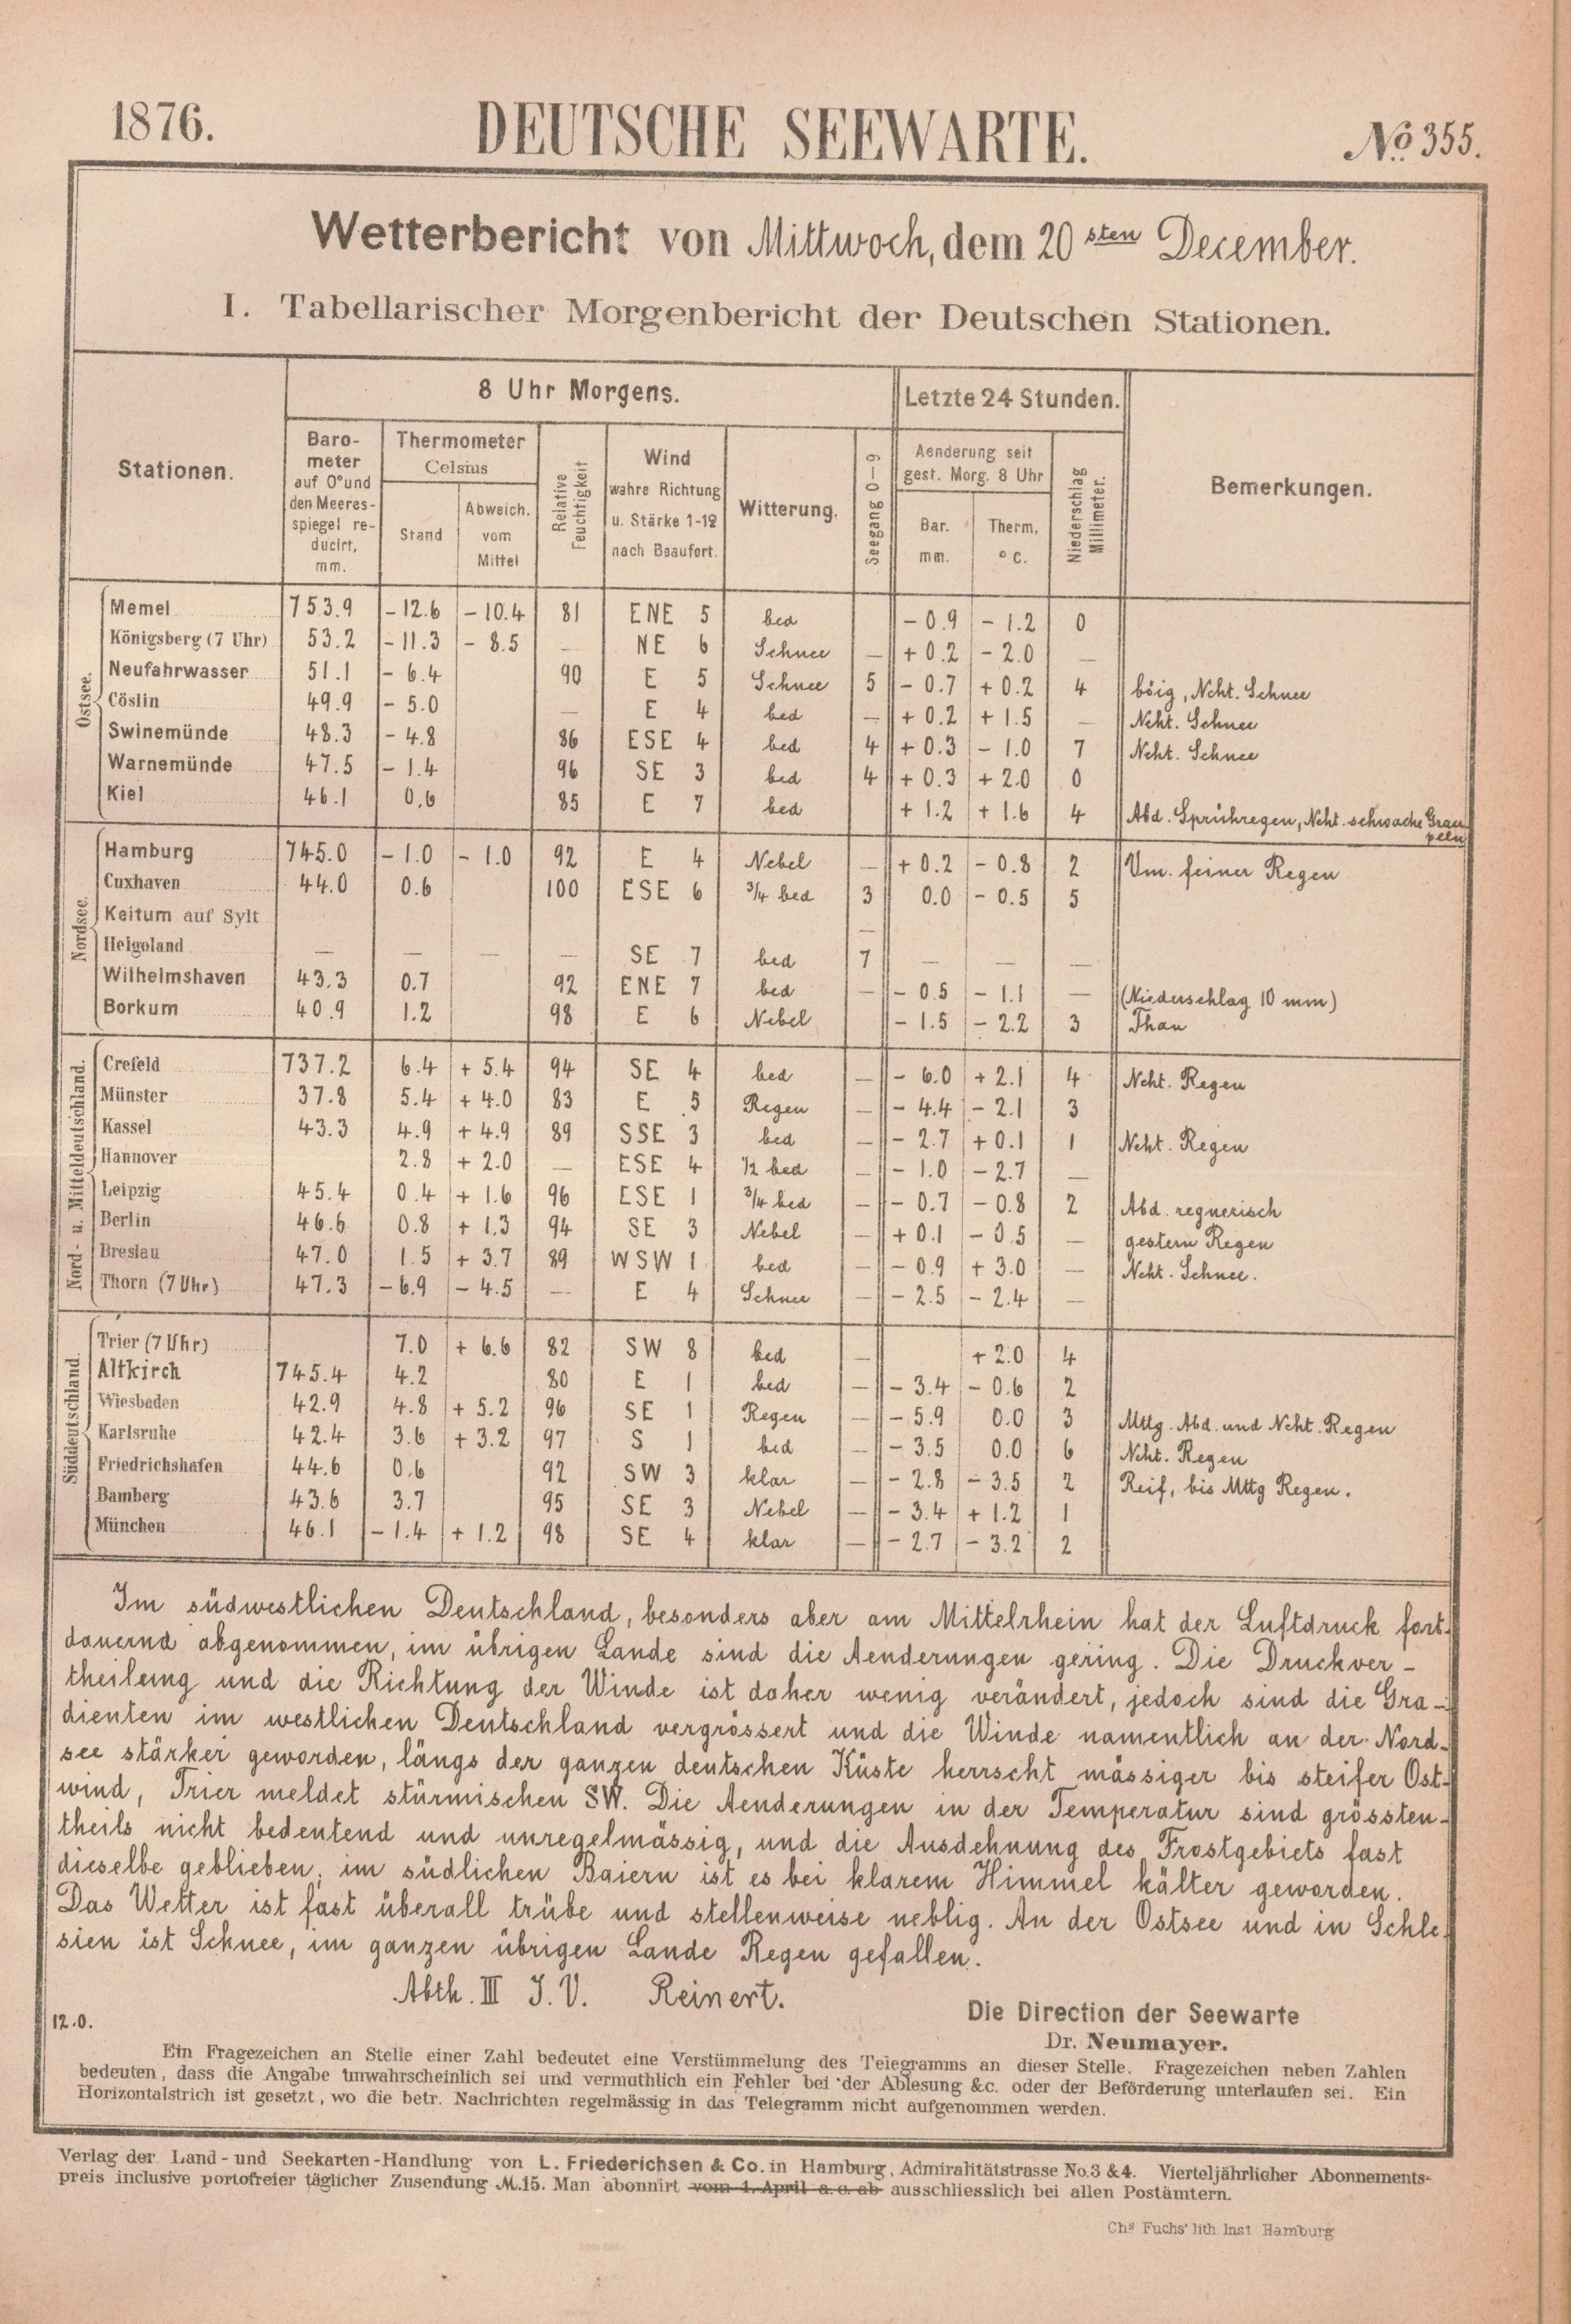 1876. DEUTSCHE SEEWARTE. No. 355.
Wetterbericht von Mittwoch, dem 20sten December.
I. Tabellarischer Morgenbericht der Deutschen Stationen.
Stationen. 8 Uhr Morgens. Letzte 24 Stunden. Bemerkungen.
Baro-
meter
auf 0° und
den Meeres-
spiegel re-
ducirt,
mm.
Thermometer
Celsius
Stand
Abweich.
vom
Mittel
Relative
Feuchtigkeit
Wind
wahre Richtung
u. Stärke 1-12
nach Beaufort.
Witterung.
Seegang 0-9
Aenderung seit
gest. Morg. 8 Uhr
Bar.
mm.
Therm.
° C.
Niederschlag
Millimeter.
Ostsee.
Memel 753.9 - 12.6 - 10.4 81 ENE 5 bed - 0.9 - 1.2 0
Königsberg (7 Uhr) 53.2 - 11.3 - 8.5 — NE 6 Schnee — + 0.2 - 2.0 —
Neufahrwasser 51.1 - 6.4 90 E 5 Schnee 5 - 0.7 + 0.2 4 böig, Ncht. Schnee
Cöslin 49.9 - 5.0 — E 4 bed — + 0.2 + 1.5 — Ncht. Schnee
Swinemünde 48.3 - 4.8 86 ESE 4 bed 4 + 0.3 - 1.0 7 Ncht. Schnee
Warnemünde 47.5 - 1.4 96 SE 3 bed 4 + 0.3 + 2.0 0
Kiel 46.1 0.6 85 E 7 bed + 1.2 + 1.6 4 Abd. Sprühregen, Ncht. schwache Grau-
peln
Nordsee.
Hamburg 745.0 - 1.0 - 1.0 92 E 4 Nebel — + 0.2 - 0.8 2 Vm. feiner Regen
Cuxhaven 44.0 0.6 100 ESE 6 3/4 bed 3 0.0 - 0.5 5
Keitum auf Sylt —
Helgoland — — — — SE 7 bed 7 — — —
Wilhelmshaven 43.3 0.7 92 ENE 7 bed — - 0.5 - 1.1 — (Niederschlag 10 mm)
Borkum 40.9 1.2 98 E 6 Nebel - 1.5 - 2.2 3 Thau
Nord- u. Mitteldeutschland.
Crefeld 737.2 6.4 + 5.4 94 SE 4 bed — - 6.0 + 2.1 4 Ncht. Regen
Münster 37.8 5.4 + 4.0 83 E 5 Regen — - 4.4 - 2.1 3
Kassel 43.3 4.9 + 4.9 89 SSE 3 bed — - 2.7 + 0.1 1 Ncht. Regen
Hannover 2.8 + 2.0 — ESE 4 1/2 bed — - 1.0 - 2.7 —
Leipzig 45.4 0.4 + 1.6 96 ESE 1 3/4 bed — - 0.7 - 0.8 2 Abd. regnerisch
Berlin 46.6 0.8 + 1.3 94 SE 3 Nebel — + 0.1 - 0.5 — gestern Regen
Breslau 47.0 1.5 + 3.7 89 WSW 1 bed — - 0.9 + 3.0 — Ncht. Schnee.
Thorn (7 Uhr) 47.3 - 6.9 - 4.5 — E 4 Schnee — - 2.5 - 2.4 —
Süddeutschland.
Trier (7 Uhr) 7.0 + 6.6 82 SW 8 bed — + 2.0 4
Altkirch 745.4 4.2 80 E 1 bed — - 3.4 - 0.6 2
Wiesbaden 42.9 4.8 + 5.2 96 SE 1 Regen — - 5.9 0.0 3 Mttg. Abd. und Ncht. Regen
Karlsruhe 42.4 3.6 + 3.2 97 S 1 bed — - 3.5 0.0 6 Ncht. Regen
Friedrichshafen 44.6 0.6 92 SW 3 klar — - 2.8 - 3.5 2 Reif, bis Mttg Regen.
Bamberg 43.6 3.7 95 SE 3 Nebel — - 3.4 + 1.2 1
München 46.1 - 1.4 + 1.2 98 SE 4 klar — - 2.7 - 3.2 2
Im südwestlichen Deutschland, besonders aber am Mittelrhein hat der Luftdruck fort-
dauernd abgenommen, im übrigen Lande sind die Aenderungen gering. Die Druckver-
theilung und die Richtung der Winde ist daher wenig verändert, jedoch sind die Gra-
dienten im westlichen Deutschland vergrössert und die Winde namentlich an der Nord-
see stärker geworden, längs der ganzen deutschen Küste herrscht mässiger bis steifer Ost-
wind, Trier meldet stürmischen SW. Die Aenderungen in der Temperatur sind grössten-
theils nicht bedeutend und unregelmässig, und die Ausdehnung des Frostgebiets fast
dieselbe geblieben; im südlichen Baiern ist es bei klarem Himmel kälter geworden.
Das Wetter ist fast überall trübe und stellenweise neblig. An der Ostsee und in Schle-
sien ist Schnee, im ganzen übrigen Lande Regen gefallen.
Abth. III I. V. Reinert.
12.0.
Die Direction der Seewarte
Dr. Neumayer.
Ein Fragezeichen an Stelle einer Zahl bedeutet eine Verstümmelung des Telegramms an dieser Stelle. Fragezeichen neben Zahlen
bedeuten, dass die Angabe unwahrscheinlich sei und vermuthlich ein Fehler bei der Ablesung &c. oder der Beförderung unterlaufen sei. Ein
Horizontalstrich ist gesetzt, wo die betr. Nachrichten regelmässig in das Telegramm nicht aufgenommen werden.
Verlag der Land- und Seekarten-Handlung von L. Friederichsen & Co. in Hamburg, Admiralitätstrasse No. 3 & 4. Vierteljährlicher Abonnements-
preis inclusive portofreier täglicher Zusendung M. 15. Man abonnirt vom 1. April a. c. ab ausschliesslich bei allen Postämtern.
Chs Fuchs' lith. Inst Hamburg